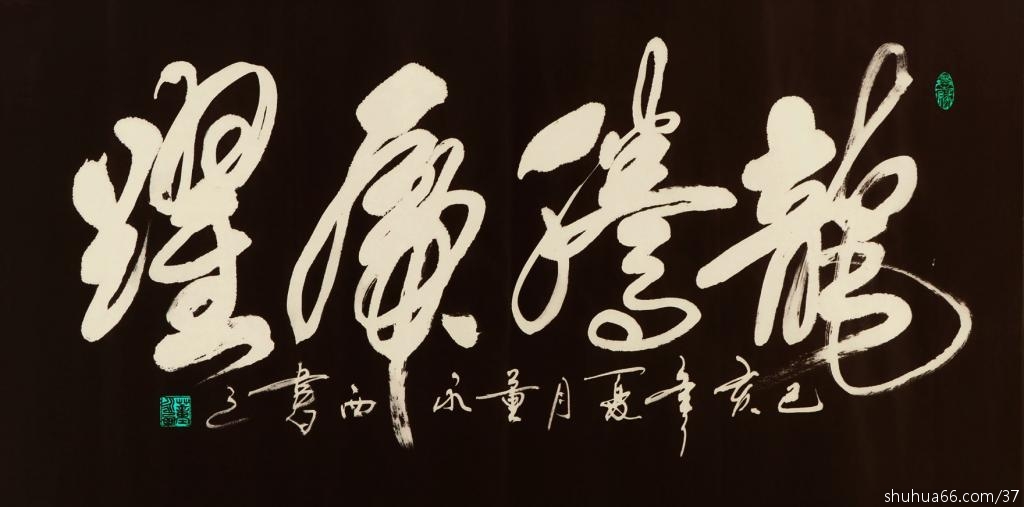 龍騰虎躍
己亥年夏月董永西書之
shuhua66.com/37